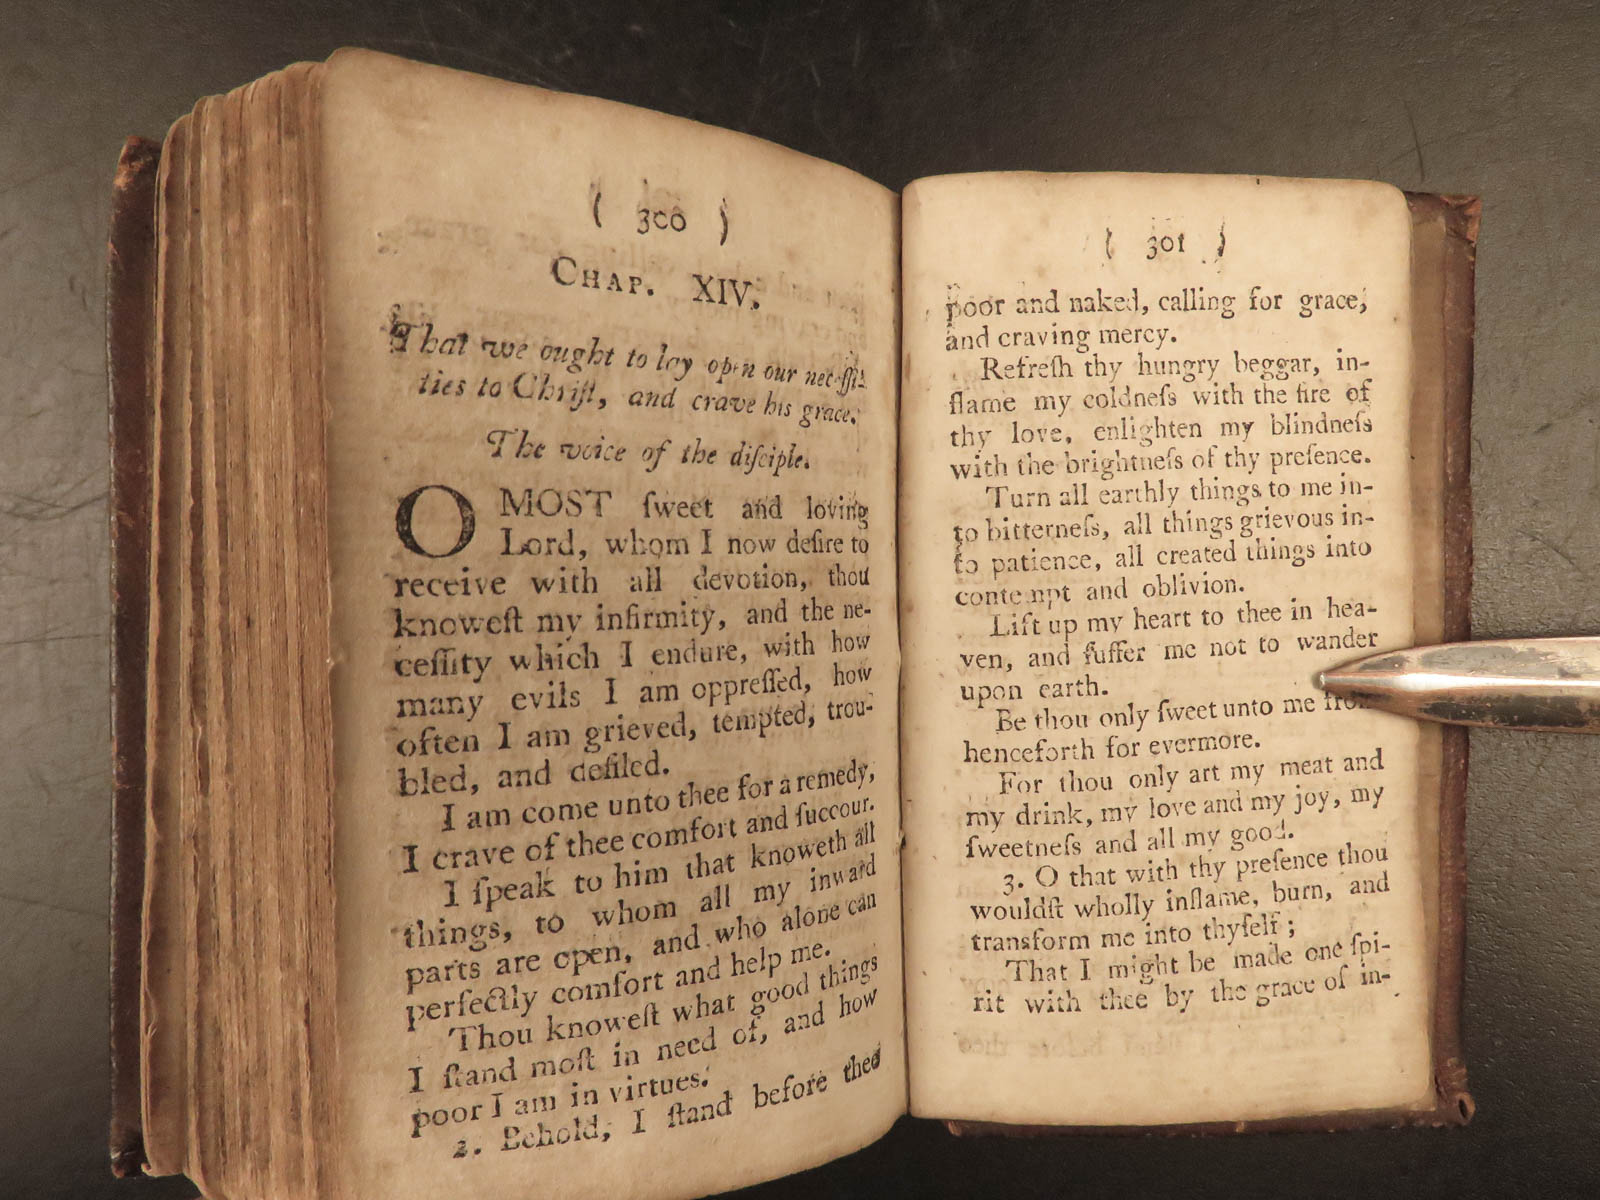 ( 300 )
CHAP. XIV.
That we ought to lay open our necessi-
ties to Chriſt, and crave his grace.
The voice of the diſciple.
O MOST ſweet and loving
Lord, whom I now deſire to
receive with all devotion, thou
knoweſt my infirmity, and the ne-
ceſſity which I endure, with how
many evils I am oppreſſed, how
often I am grieved, tempted, trou-
bled, and defiled.
I am come unto thee for a remedy,
I crave of thee comfort and ſuccour.
I ſpeak to him that knoweth all
things, to whom all my inward
parts are open, and who alone can
perfectly comfort and help me.
Thou knoweſt what good things
I ſtand moſt in need of, and how
poor I am in virtues.
2. Behold, I ſtand before thee
( 301 )
poor and naked, calling for grace,
and craving mercy.
Refreſh thy hungry beggar, in-
flame my coldneſs with the fire of
thy love, enlighten my blindneſs
with the brightneſs of thy preſence.
Turn all earthly things to me in-
to bitterneſs, all things grievous in-
to patience, all created things into
contempt and oblivion.
Lift up my heart to thee in hea-
ven, and ſuffer me not to wander
upon earth.
Be thou only ſweet unto me from
henceforth for evermore.
For thou only art my meat and
my drink, my love and my joy, my
ſweetneſs and all my good.
3. O that with thy preſence thou
wouldſt wholly inflame, burn, and
transform me into thyſelf;
That I might be made one ſpi-
rit with thee by the grace of in-